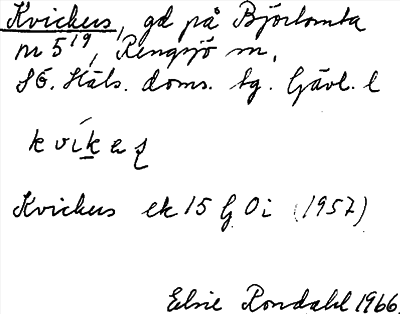 Kvickers, gd på Björtomta
nr 5¹⁹, Rengsjö sn,
SÖ. Häls. doms. tg. Gävl. l
kvíkeʂ
Kvickers ek 15 G Oi (1957)
Elsie Rondahl 1966.